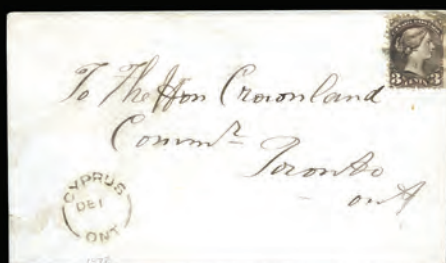 3 CENTS 3
To The Hon Crownland
Commr
Toronto
ont
CYPRUS
DE 1
ONT